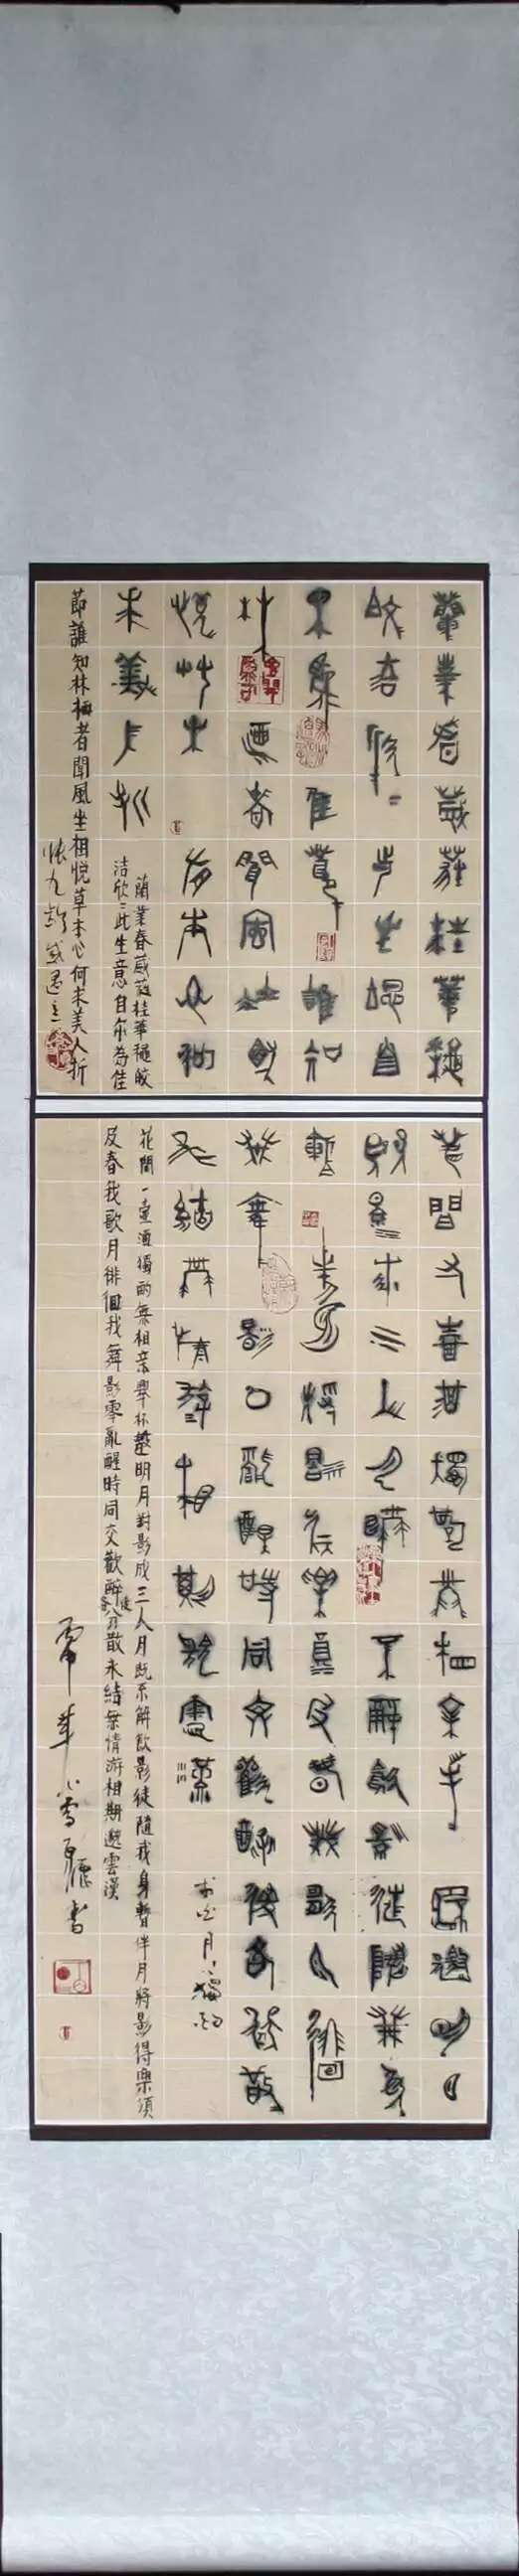 蘭葉春葳蕤桂華穐
皎洁欣=此生意自
尔為佳節誰知
林栖者聞風坐相
悅草木有本心何
求美人折
蘭葉春葳蕤桂華穐皎
洁欣=此生意自尔為佳
節誰知林栖者聞風坐相悅草本心何求美人折
張九龄感遇之一
花間一壺酒獨酌無相亲舉杯邀明月
對影成三人月既不解飲影徒隨我身
暫伴月將影行樂須及春我歌月徘徊
我舞影零亂醒時同交歡醉後各分散
永結無情游相期邈雲漢
李白月下獨酌
花間一壺酒獨酌無相亲舉杯邀明月對影成三人月既不解飲影徒隨我身暫伴月將影得樂須
及春我歌月徘徊我舞影零亂醒時同交歡醉後各分散永結無情游相期邈雲漢